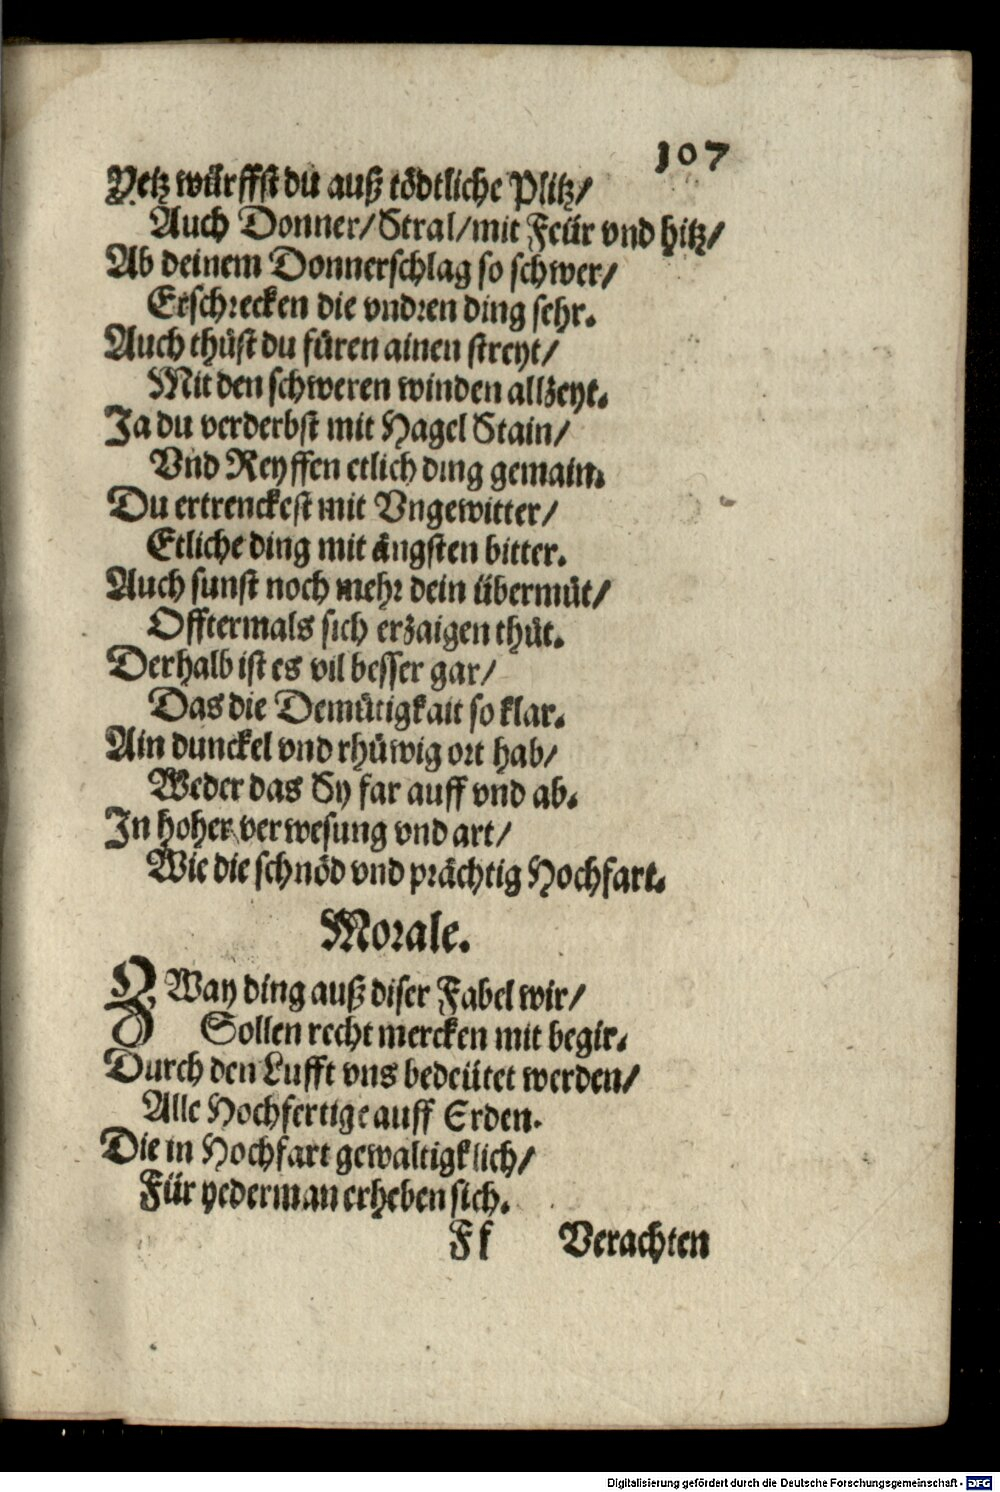 107
Yetz würffst du auß tödtliche Plitz/
Auch Donner/Stral/mit Feür vnd hitz/
Ab deinem Donnerschlag so schwer/
Erschrecken die vndren ding sehr.
Auch thůst du füren ainen streyt/
Mit den schweren winden allzeyt.
Ja du verderbst mit Hagel Stain/
Vnd Reyffen etlich ding gemain.
Du ertrenckest mit Vngewitter/
Etliche ding mit ängsten bitter.
Auch sunst noch mehr dein übermůt/
Offtermals sich erzaigen thůt.
Derhalb ist es vil besser gar/
Das die Demütigkait so klar.
Ain dunckel vnd rhüwig ort hab/
Weder das Sy far auff vnd ab.
In hoher verwesung vnd art/
Wie die schnöd vnd prächtig Hochfart.
Morale.
ZWay ding auß diser Fabel wir/
Sollen recht mercken mit begir.
Durch den Lufft vns bedeütet werden/
Alle Hochfertige auff Erden.
Die in Hochfart gewaltigklich/
Für yederman erheben sich.
Ff Verachten
Digitalisierung gefördert durch die Deutsche Forschungsgemeinschaft - DFG